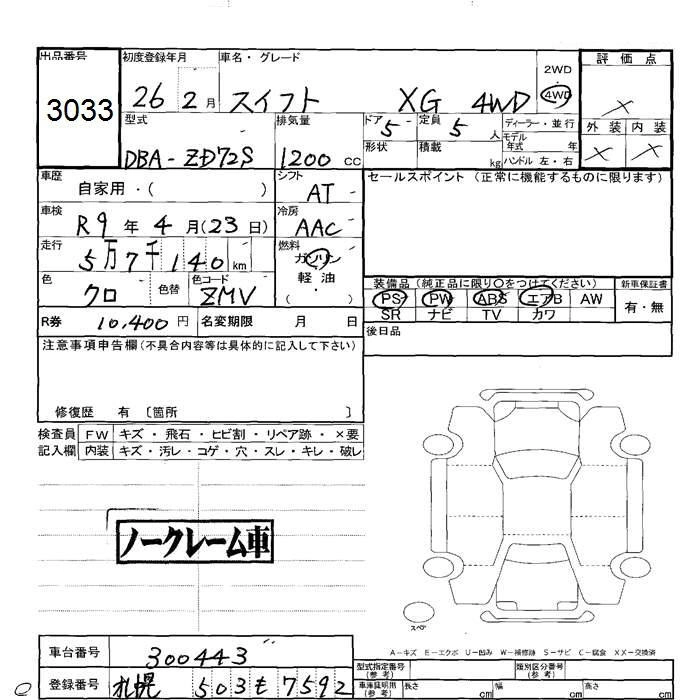 出品番号 初度登録年月 車名・グレード 2WD 評価点
3033 26 2月 スイフト XG 4WD 4WD ×
型式 排気量 ドア 5 定員 5人 ディーラー・並行 外装 内装
DBA-ZD72S 1200 cc 形状 積載 kg モデル年式 年 ハンドル 左・右 × ×
車歴 自家用・( ) シフト AT セールスポイント (正常に機能するものに限ります)
車検 R9年4月(23日) 冷房 AAC
走行 5万7千140km 燃料 ガソリン
軽油
・( )
色 クロ 色替 色コード ZMV 装備品 (純正品に限り○をつけてください) 新車保証書
PS PW ABS エアB AW 有・無
SR ナビ TV カワ
R券 10,400円 名変期限 月 日 後日品
注意事項申告欄(不具合内容等は具体的に記入して下さい)
修復歴 有 〔箇所 〕
検査員 FW キズ・飛石・ヒビ割・リペア跡・×要
記入欄 内装 キズ・汚レ・コゲ・穴・スレ・キレ・破レ
ノークレーム車
スペア
A-キズ E-エクボ U-凹み W-補修跡 S-サビ C-腐食 XX-交換済
車台番号 300443 型式指定番号(参考) 類別区分番号(参考)
登録番号 札幌 503 も 7592 車庫証明用(参考) 長さ cm 幅 cm 高さ cm